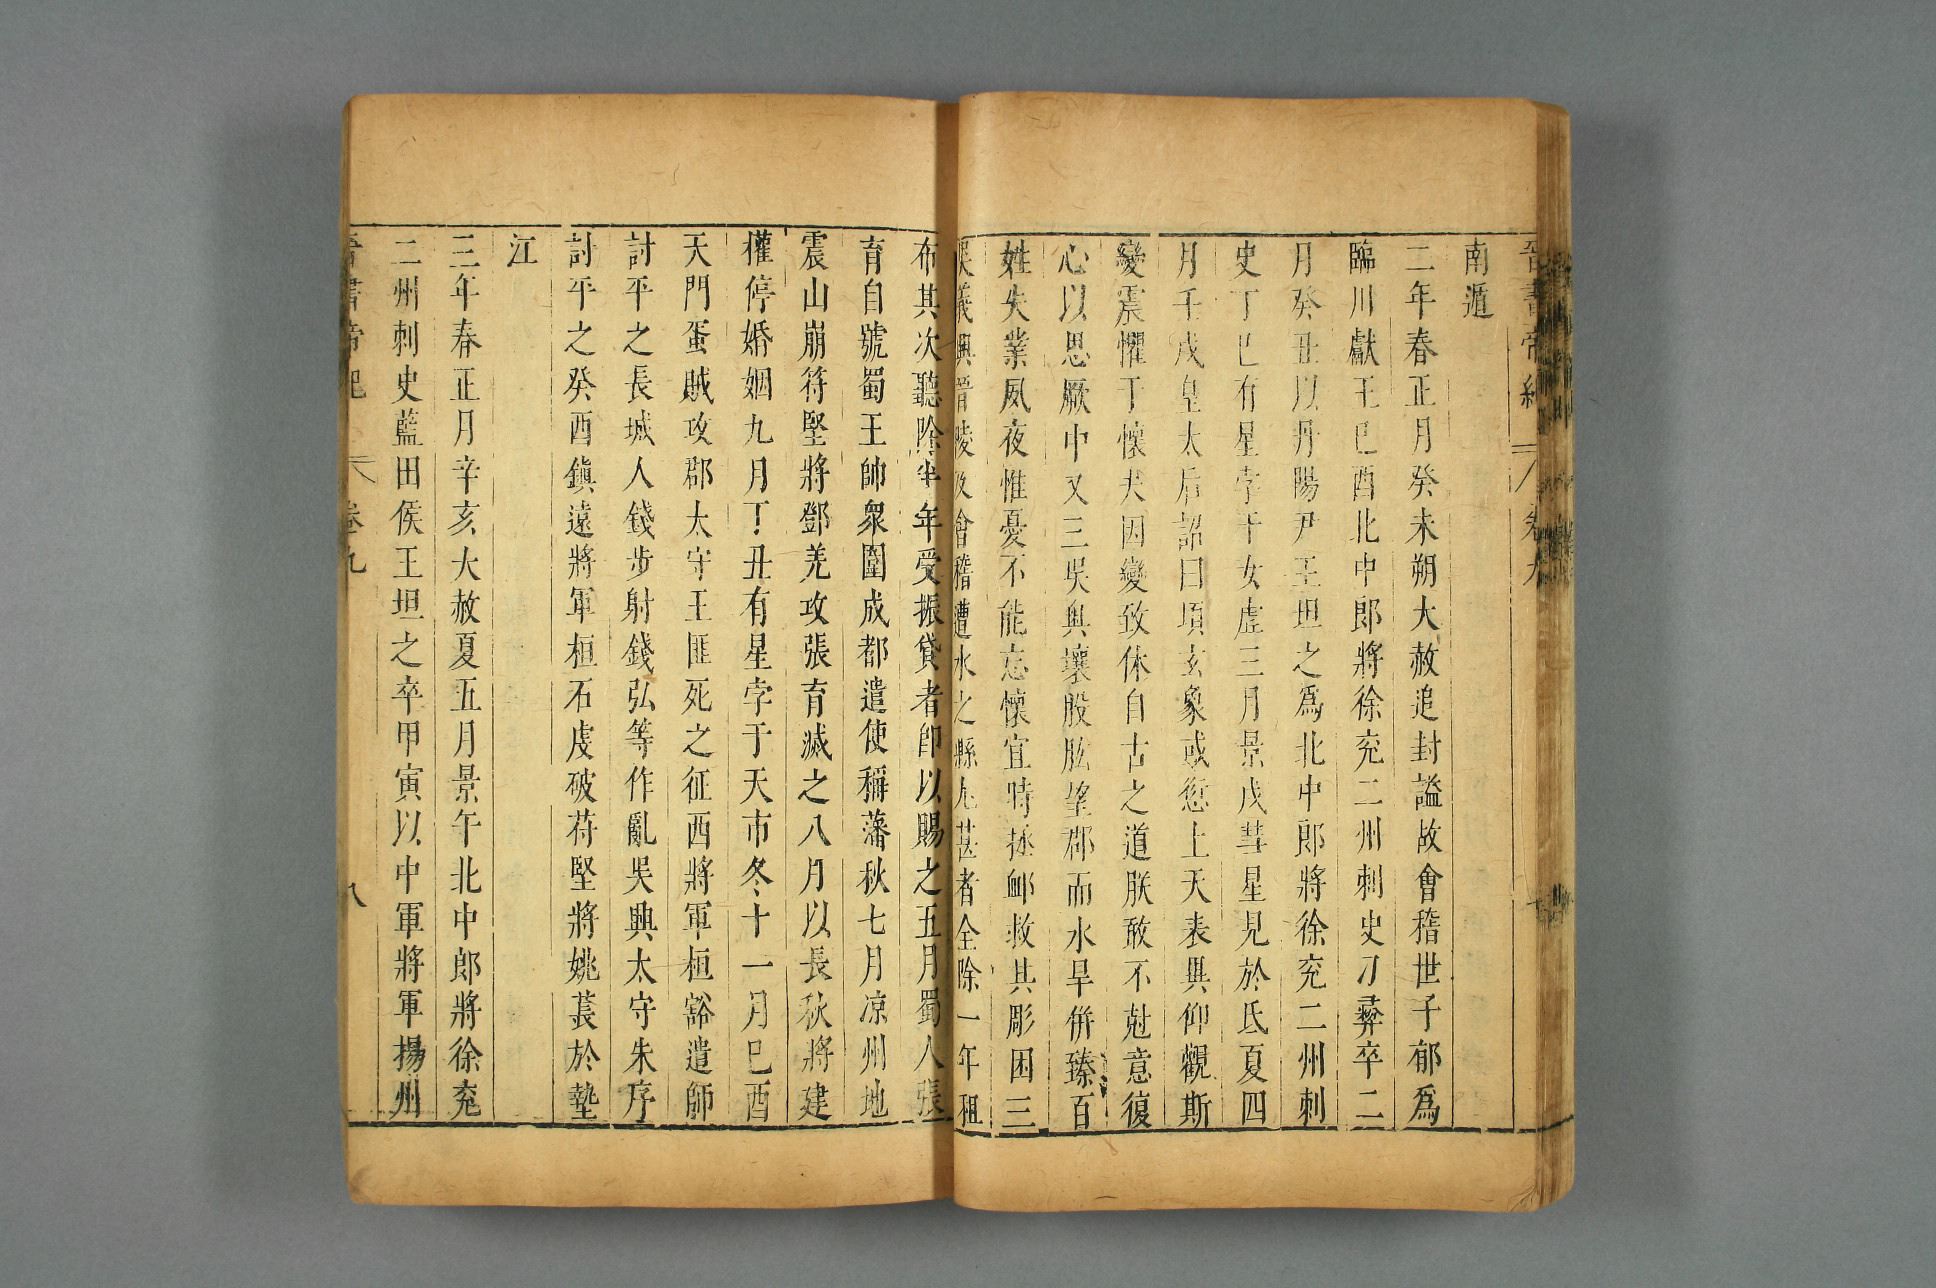 晉書帝紀 卷九
南遁
二年春正月癸未朔大赦追封謚故會稽世子郁爲
臨川獻王巳酉北中郎將徐兖二州刺史刁彝卒二
月癸丑以丹陽尹王坦之爲北中郎將徐兖二州刺
史丁巳有星孛于女虛三月景戌彗星見於氐夏四
月壬戌皇太后詔曰頃玄象或愆上天表異仰觀斯
變震懼于懷夫因變致休自古之道朕敢不尅意復
心以思厥中又三吳奥壤股肱望郡而水旱併臻百
姓失業夙夜惟憂不能忘懷宜時拯卹救其彫困三
吳義興晉陵及會稽遭水之縣尤甚者全除一年租
布其次聽除半年受振貸者即以賜之五月蜀人張
育自號蜀王帥衆圍成都遣使稱藩秋七月凉州地
震山崩符堅將鄧羌攻張育滅之八月以長秋將建
權停婚姻九月丁丑有星孛于天市冬十一月巳酉
天門蛋賊攻郡太守王匪死之征西將軍桓豁遣師
討平之長城人錢步射錢弘等作亂吳興太守朱序
討平之癸酉鎭遠將軍桓石虔破苻堅將姚萇於墊
江
三年春正月辛亥大赦夏五月景午北中郎將徐兖
二州刺史藍田侯王坦之卒甲寅以中軍將軍揚州
晉書帝紀 卷九 八